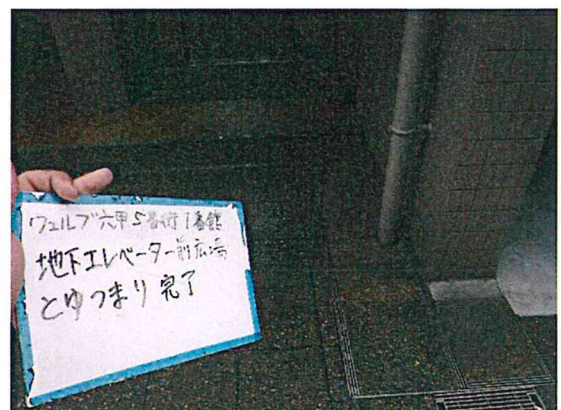 ウェルブ六甲5番街1番館
地下エレベーター前広場
とゆつまり完了